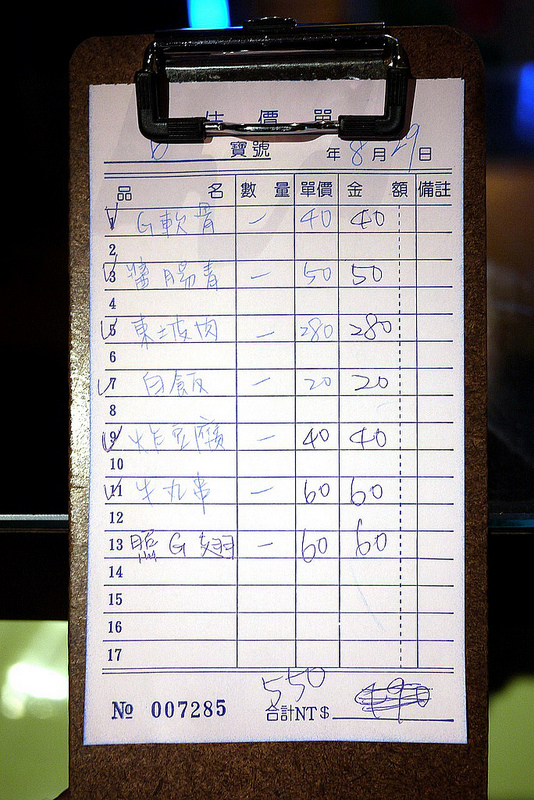 估價單
寶號 年8月29日
品名 數量 單價 金額 備註
1 G軟骨 一 40 40
2
3 一 50 50
4
5 東坡肉 一 280 280
6
7 白飯 一 20 20
8
9 炸豆腐 一 40 40
10
11 牛丸串 一 60 60
12
13 G翅 一 60 60
14
15
16
17
550
№ 007285 合計NT$ 490